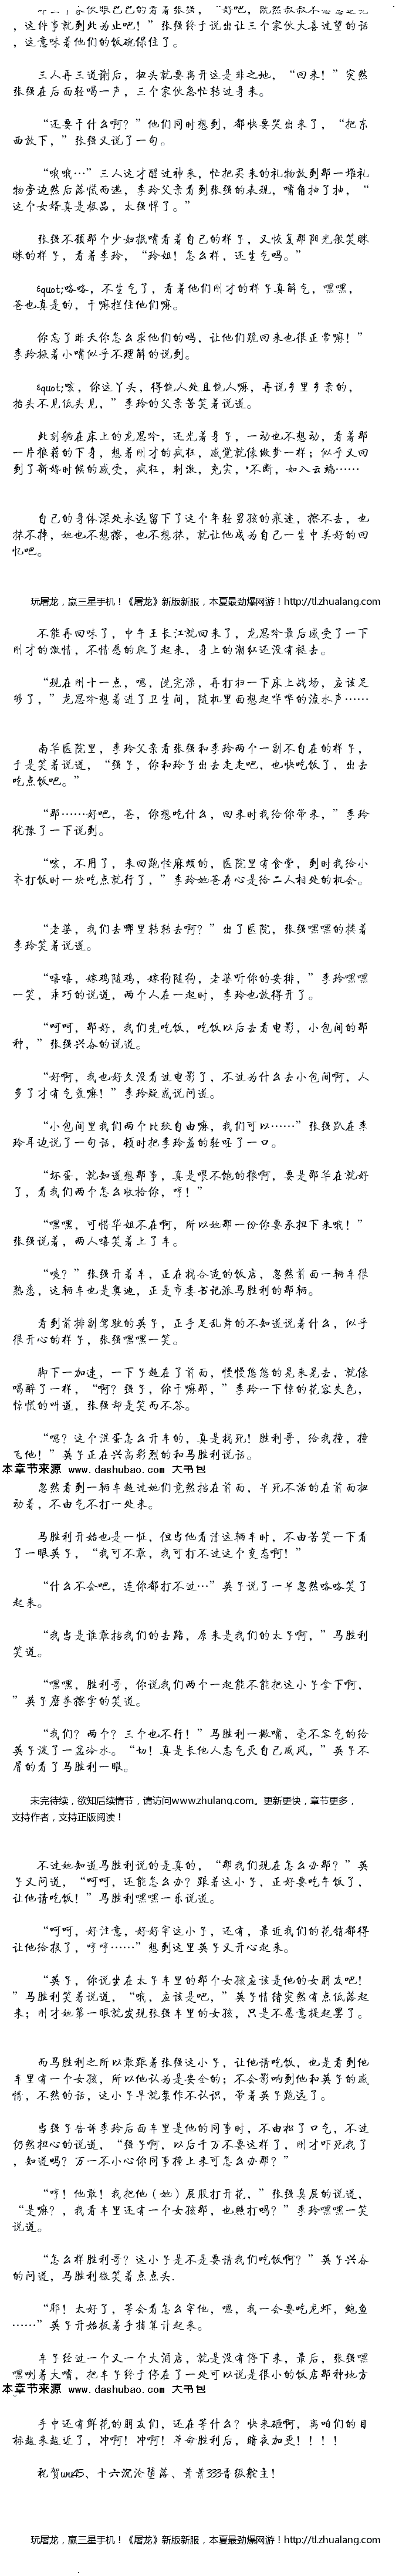 那三个家伙眼巴巴的看着张强，“好吧，既然叔叔不愿意追究
，这件事就到此为止吧！”张强终于说出让三个家伙大喜过望的话
，这意味着他们的饭碗保住了。
三人再三道谢后，扭头就要离开这是非之地，“回来！”突然
张强在后面轻喝一声，三个家伙急忙转过身来。
“还要干什么啊？”他们同时想到，都快要哭出来了，“把东
西放下，”张强又说了一句。
“哦哦…”三人这才醒过神来，忙把买来的礼物放到那一堆礼
物旁边然后落慌而逃，李玲父亲看到张强的表现，嘴角抽了抽，“
这个女婿真是极品，太强悍了。”
张强不顾那个少妇抿嘴看着自己的样子，又恢复那阳光般笑眯
眯的样子，看着李玲，“玲姐！怎么样，还生气吗。”
&quot;咯咯，不生气了，看着他们刚才的样子真解气，嘿嘿，
爸也真是的，干嘛拦住他们嘛。
你忘了昨天你怎么求他们的吗，让他们跪回来也很正常嘛！”
李玲撅着小嘴似乎不理解的说到。
&quot;咳，你这丫头，得饶人处且饶人嘛，再说乡里乡亲的，
抬头不见低头见，”李玲的父亲苦笑着说道。
此刻躺在床上的龙思吟，还光着身子，一动也不想动，看着那
一片狼藉的下身，想着刚才的疯狂，感觉就像做梦一样；似乎又回
到了新婚时候的感受，疯狂，刺激，充实，·不断，如入云端……
自己的身体深处永远留下了这个年轻男孩的痕迹，擦不去，也
抹不掉，她也不想擦，也不想抹，就让他成为自己一生中美好的回
忆吧。
玩屠龙，赢三星手机！《屠龙》新版新服，本夏最劲爆网游！http://tl.zhualang.com
不能再回味了，中午王长江就回来了，龙思吟最后感受了一下
刚才的激情，不情愿的爬了起来，身上的潮红还没有褪去。
“现在刚十一点，嗯，洗完澡，再打扫一下床上战场，应该足
够了，”龙思吟想着进了卫生间，随机里面想起哗哗的流水声……
南华医院里，李玲父亲看张强和李玲两个一副不自在的样子，
于是笑着说道，“强子，你和玲子出去走走吧，也快吃饭了，出去
吃点饭吧。”
“那……好吧，爸，你想吃什么，回来时我给你带来，”李玲
犹豫了一下说到。
“咳，不用了，来回跑怪麻烦的，医院里有食堂，到时我给小
齐打饭时一块吃点就行了，”李玲她爸在心是给二人相处的机会。
“老婆，我们去哪里转转去啊？”出了医院，张强嘿嘿的搂着
李玲笑着说道。
“嘻嘻，嫁鸡随鸡，嫁狗随狗，老婆听你的安排，”李玲嘿嘿
一笑，乖巧的说道，两个人在一起时，李玲也放得开了。
“呵呵，那好，我们先吃饭，吃饭以后去看电影，小包间的那
种，”张强兴奋的说道。
“好啊，我也好久没看过电影了，不过为什么去小包间啊，人
多了才有气氛嘛！”李玲疑惑说问道。
“小包间里我们两个比较自由嘛，我们可以……”张强趴在李
玲耳边说了一句话，顿时把李玲羞的轻呸了一口。
“坏蛋，就知道想那事，真是喂不饱的狼啊，要是邵华在就好
了，看我们两个怎么收拾你，哼！”
“嘿嘿，可惜华姐不在啊，所以她那一份你要承担下来哦！”
张强说着，两人嘻笑着上了车。
“咦？”张强开着车，正在找合适的饭店，忽然前面一辆车很
熟悉，这辆车也是奥迪，正是市委书记派马胜利的那辆。
看到前排副驾驶的英子，正手足乱舞的不知道说着什么，似乎
很开心的样子，张强嘿嘿一笑。
脚下一加速，一下子超在了前面，慢慢悠悠的晃来晃去，就像
喝醉了一样，“啊？强子，你干嘛那，”李玲一下惊的花容失色，
惊慌的叫道，张强却是笑而不答。
“嗯？这个混蛋怎么开车的，真是找死！胜利哥，给我撞，撞
飞他！”英子正在兴高彩烈的和马胜利说话。
本章节来源 www.dashubao.com 大书包
忽然看到一辆车超过她们竟然挡在前面，半死不活的在前面扭
动着，不由气不打一处来。
马胜利开始也是一怔，但当他看清这辆车时，不由苦笑一下看
了一眼英子，“我可不敢，我可打不过这个变态啊！”
“什么不会吧，连你都打不过…”英子说了一半忽然咯咯笑了
起来。
“我当是谁敢挡我们的去路，原来是我们的太子啊，”马胜利
笑道。
“嘿嘿，胜利哥，你说我们两个一起能不能把这小子拿下啊，
”英子磨拳擦掌的笑道。
“我们？两个？三个也不行！”马胜利一撇嘴，毫不客气的给
英子泼了一盆冷水。“切！真是长他人志气灭自己威风，”英子不
屑的看了马胜利一眼。
未完待续，欲知后续情节，请访问www.zhulang.com。更新更快，章节更多，
支持作者，支持正版阅读！
不过她知道马胜利说的是真的，“那我们现在怎么办那？”英
子又问道，“呵呵，还能怎么办？跟着这小子，正好要吃午饭了，
让他请吃饭！”马胜利嘿嘿一乐说道。
“呵呵，好注意，好好宰这小子，还有，最近我们的花销都得
让他给报了，哼哼……”想到这里英子又开心起来。
“英子，你说坐在太子车里的那个女孩应该是他的女朋友吧！
”马胜利笑着说道，“哦，应该是吧，”英子情绪突然有点低落起
来；刚才她第一眼就发现张强车里的女孩，只是不愿意提起罢了。
而马胜利之所以敢跟着张强这小子，让他请吃饭，也是看到他
车里有一个女孩，所以他认为是安全的；不会影响到他和英子的感
情，不然的话，这小子早就装作不认识，带着英子跑远了。
当强子告诉李玲后面车里是他的同事时，不由松了口气，不过
仍然担心的说道，“强子啊，以后千万不要这样了，刚才吓死我了
，知道吗？万一不小心你同事撞上来可怎么办那？”
“哼！他敢！我把他（她）屁股打开花，”张强臭屁的说道，
“是嘛？，我看车里还有一个女孩那，也照打吗？”李玲嘿嘿一笑
说道。
“怎么样胜利哥？这小子是不是要请我们吃饭啊？”英子兴奋
的问道，马胜利微笑着点点头.
“耶！太好了，等会看怎么宰他，嗯，我一会要吃龙虾，鲍鱼
……”英子开始扳着手指算计起来。
车子经过一个又一个大酒店，就是没有停下来，最后，张强嘿
嘿咧着大嘴，把车子终于停在了一处可以说是很小的饭店那种地方
本章节来源 www.dashubao.com 大书包
手中还有鲜花的朋友们，还在等什么？快来砸啊，离咱们的目
标越来越近了，冲啊！冲啊！革命胜利后，暗夜加更！！！！
祝贺wu45、十六沉沦堕落、菁菁333晋级舵主！
玩屠龙，赢三星手机！《屠龙》新版新服，本夏最劲爆网游！http://tl.zhualang.com